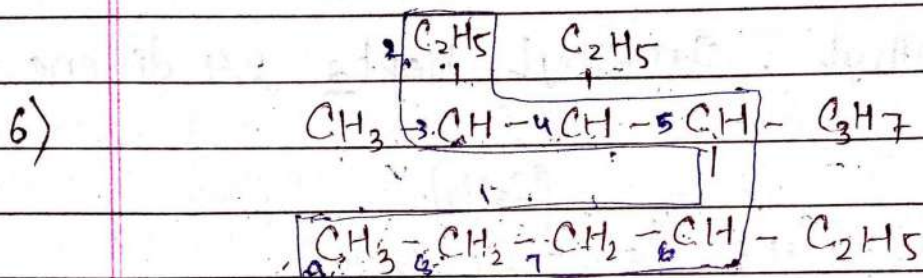 2 C₂H₅ C₂H₅
6) CH₃ - 3 CH - 4 CH - 5 CH - C₃H₇
9 CH₃ - 8 CH₂ - 7 CH₂ - 6 CH - C₂H₅